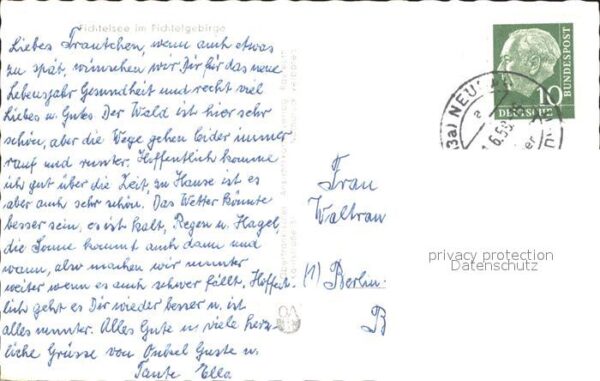 Fichtelsee im Fichtelgebirge
Liebes Trautchen, wenn auch etwas
zu spät, wünschen wir Dir für das neue
Lebensjahr Gesundheit und recht viel
Liebes u. Gutes. Der Wald ist hier sehr
schön, aber die Wege gehen leider immer
rauf und runter. Hoffentlich komme
ich gut über die Zeit, zu Hause ist es
aber auch sehr schön. Das Wetter könnte
besser sein, es ist kalt, Regen u. Hagel,
die Sonne kommt auch dann und
wann, also machen wir munter
weiter wenn es auch schwer fällt. Hoffent-
lich geht es Dir wieder besser u. ist
alles munter. Alles Gute u. viele herz-
liche Grüsse von Onkel Guste u.
Tante Ella.
10
DEUTSCHE
BUNDESPOST
(13a) NEU
6.58
Frau
Waltrau
(1) Berlin-
B
privacy protection
Datenschutz